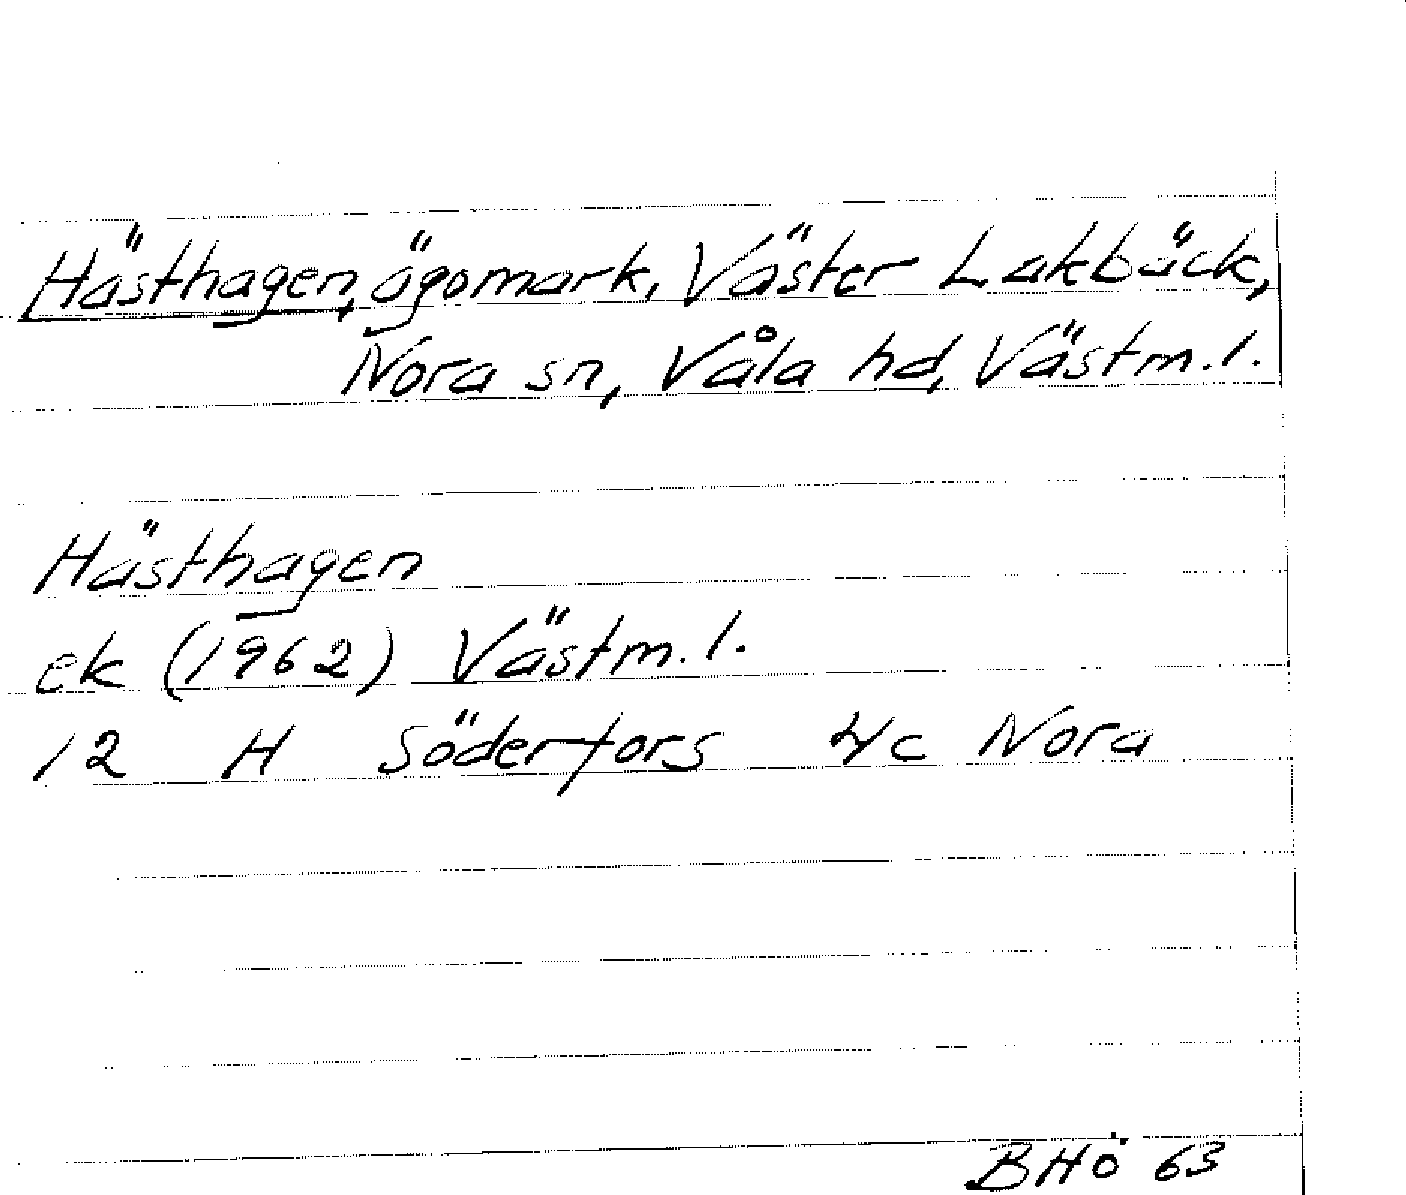 Hästhagen, ägomark, Väster Lakbäck,
Nora sn, Våla hd, Västm.l.
Hästhagen
ek (1962) Västm.l.
12 H Söderfors 4c Nora
BHö 63